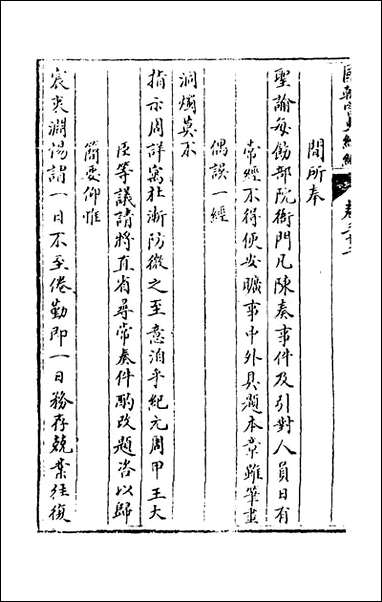 國朝宮史續編 卷三十一
間所奉
聖諭每飭部院衙門凡陳奏事件及引對人員日有
常經不得便安曠事中外具題本章雖筆畫
偶誤一經
洞燭莫不
指示周詳寓杜漸防微之至意洎乎紀元周甲王大
臣等議請將直省尋常奏件酌改題咨以歸
簡要仰惟
宸衷淵湯謂一日不至倦勤即一日務存兢業往復